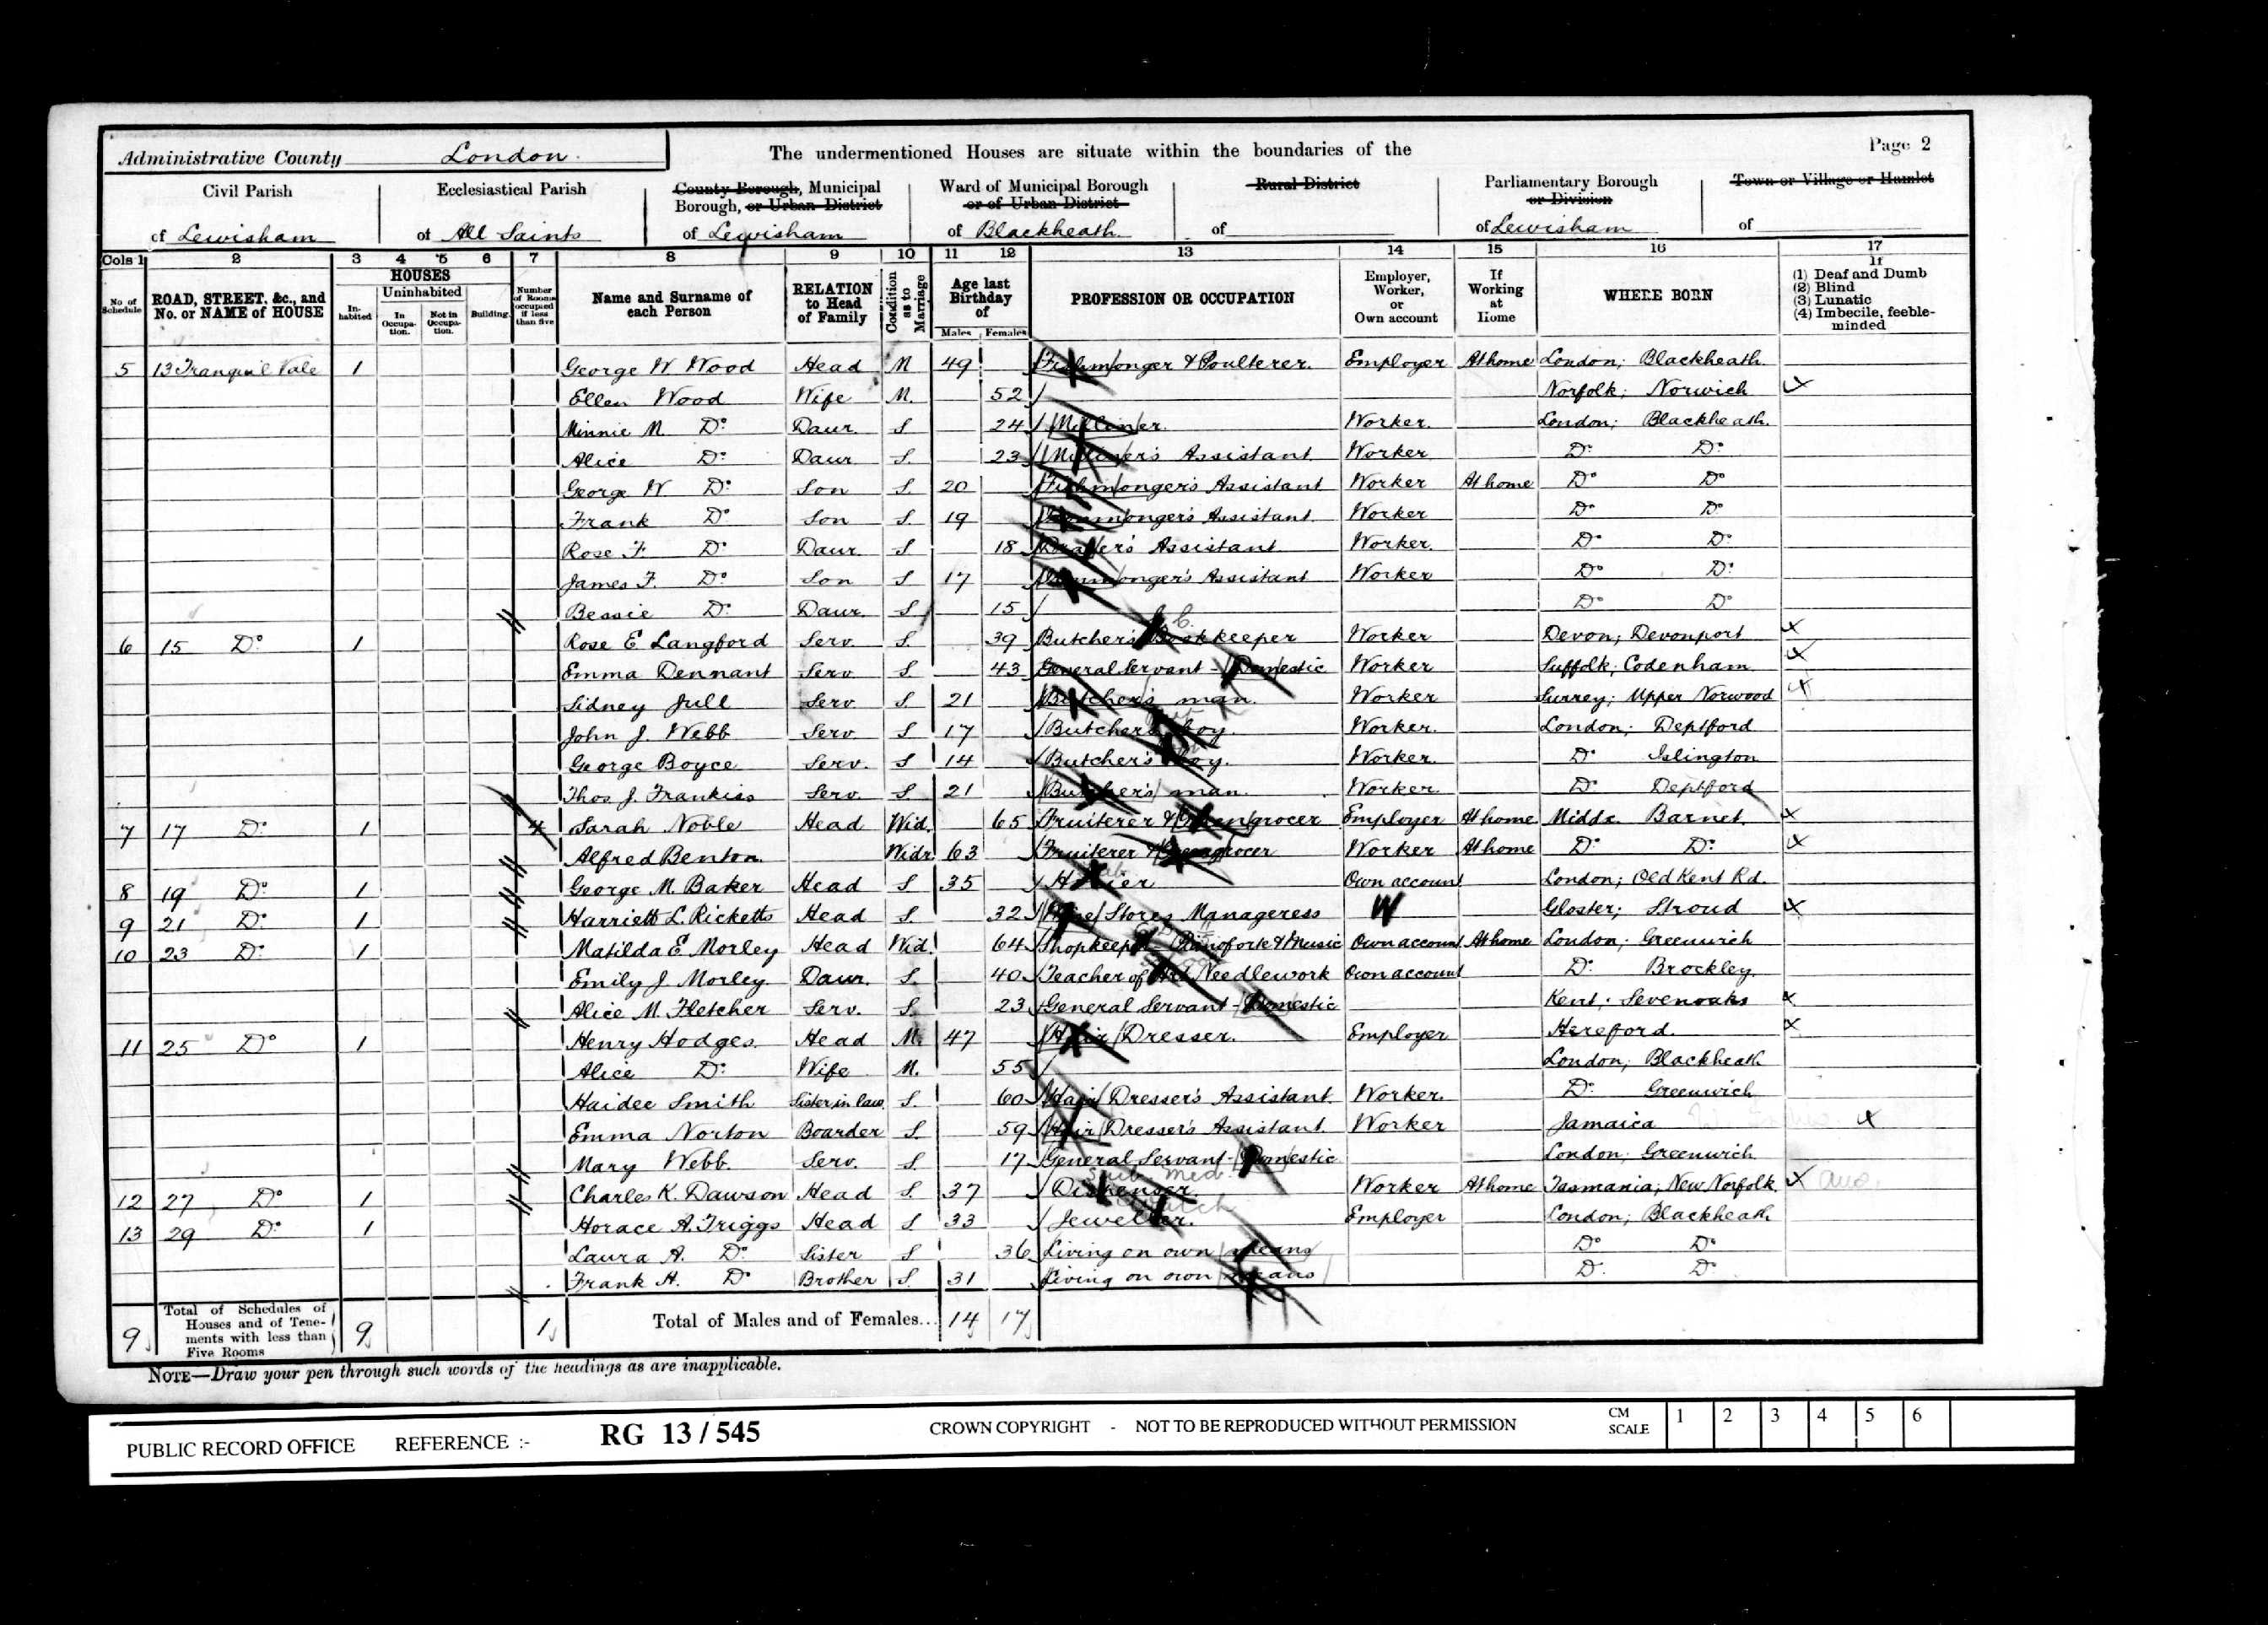 Page 2
Administrative County London. The undermentioned Houses are situate within the boundaries of the
Civil Parish of Lewisham
Ecclesiastical Parish of All Saints
County Borough, Municipal Borough, or Urban District of Lewisham
Ward of Municipal Borough or of Urban District of Blackheath
Rural District of
Parliamentary Borough or Division of Lewisham
Town or Village or Hamlet of
Cols 1 2 3 4 5 6 7 8 9 10 11 12 13 14 15 16 17
No of Schedule
ROAD, STREET, &c., and No. or NAME of HOUSE
HOUSES
In-habited
Uninhabited
In Occupa-tion.
Not in Occupa-tion.
Building.
Number of Rooms occupied if less than five
Name and Surname of each Person
RELATION to Head of Family
Condition as to Marriage
Age last Birthday of
Males Females
PROFESSION OR OCCUPATION
Employer, Worker, or Own account
If Working at Home
WHERE BORN
If
(1) Deaf and Dumb
(2) Blind
(3) Lunatic
(4) Imbecile, feeble-minded
5 13 Tranquil Vale 1 George W Wood Head M 49 Fishmonger & Poulterer. Employer At home London; Blackheath
Ellen Wood Wife M. 52 Norfolk; Norwich
Minnie M. Do Daur. S 24 Milliner. Worker. London; Blackheath.
Alice Do Daur S. 23 Milliner's Assistant Worker Do Do
George W Do Son S. 20 Fishmonger's Assistant Worker At home Do Do
Frank Do Son S. 19 Assistant. Worker Do Do
Rose F. Do Daur. S 18 Draper's Assistant Worker. Do Do
James F. Do Son S 17 Assistant Worker Do Do
Bessie Do Daur. S 15 Do Do
6 15 Do 1 Rose E Langford Serv. S. 39 Butcher's Bookkeeper Worker Devon; Devonport
Emma Dennant Serv. S. 43 General Servant - Domestic Worker Suffolk; Codenham
Sidney Jull Serv. S. 21 Butcher's man. Worker Surrey; Upper Norwood
John J. Webb Serv. S 17 Butcher's boy. Worker. London; Deptford
George Boyce Serv. S 14 Butcher's boy. Worker. Do Islington
Thos. J. Frankiss Serv. S. 21 Butcher's man. Worker. Do Deptford
7 17 Do 1 4 Sarah Noble Head Wid. 65 Fruiterer & Greengrocer Employer At home Middx Barnet.
Alfred Benton. Widr. 63 Fruiterer & Greengrocer Worker At home Do Do
8 19 Do 1 George M. Baker Head S 35 Hosier Own account London; Old Kent Rd.
9 21 Do 1 Harriett L. Ricketts Head S. 32 Stores Manageress W Gloster; Stroud
10 23 Do 1 Matilda E. Morley Head Wid. 64 Shopkeeper Pianoforte & Music Own account At home London; Greenwich
Emily J. Morley Daur. S. 40 Teacher of Art Needlework Own account Do Brockley.
Alice M. Fletcher Serv. S. 23 General Servant - Domestic Kent; Sevenoaks
11 25 Do 1 Henry Hodges. Head M. 47 Hair Dresser. Employer Hereford.
Alice Do Wife M. 55 London; Blackheath
Haidee Smith Sister in law S. 60 Hair Dresser's Assistant. Worker. Do Greenwich
Emma Norton Boarder S. 59 Hair Dresser's Assistant Worker Jamaica
Mary Webb. Serv. S. 17 General Servant - Domestic London; Greenwich
12 27 Do 1 Charles K. Dawson Head S. 37 Dispenser. Worker At home Tasmania; New Norfolk.
13 29 Do 1 Horace A. Triggs Head S 33 Jeweller. Employer London; Blackheath
Laura A. Do Sister S 36 Living on own means Do Do
Frank H. Do Brother S. 31 Living on own means Do Do
9 Total of Schedules of Houses and of Tene-ments with less than Five Rooms 9 1 Total of Males and of Females... 14 17
NOTE—Draw your pen through such words of the headings as are inapplicable.
PUBLIC RECORD OFFICE REFERENCE :- RG 13 / 545 CROWN COPYRIGHT - NOT TO BE REPRODUCED WITHOUT PERMISSION CM SCALE 1 2 3 4 5 6